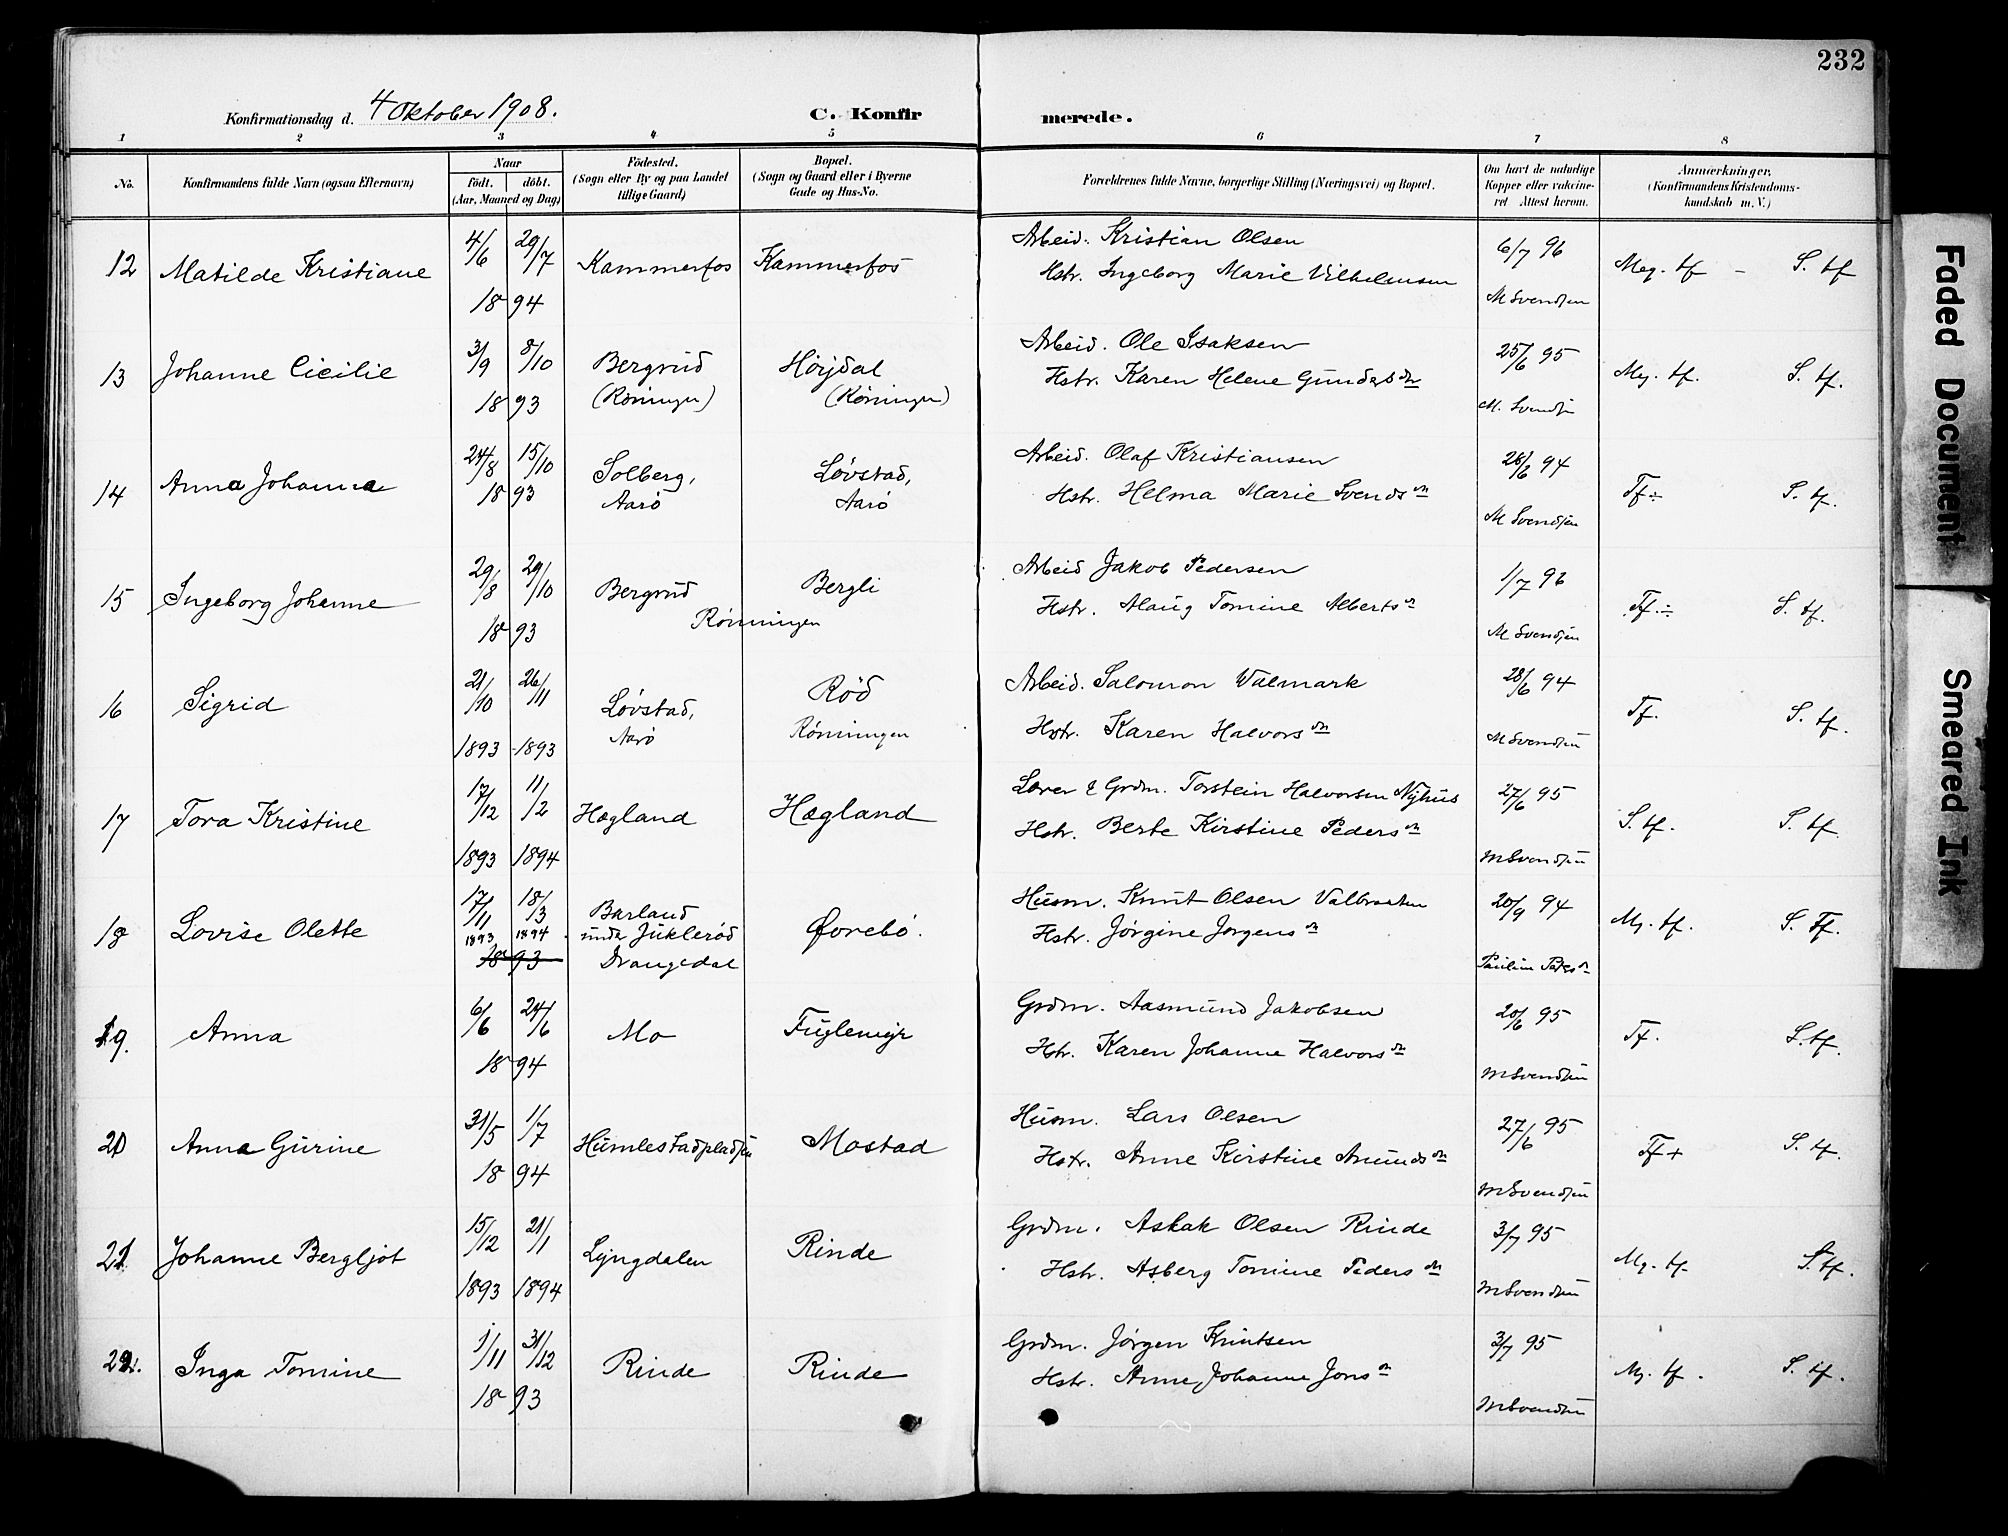 232
Konfirmationsdag d. 4 Oktober 1908.
C. Konfirmerede.
1 2 3 4 5 6 7 8
No.
Konfirmandens fulde Navn (ogsaa Efternavn)
Naar
födt. döbt.
(Aar, Maaned og Dag)
Födested.
(Sogn eller By og paa Landet
tillige Gaard)
Bopæl.
(Sogn og Gaard eller i Byerne
Gade og Hus-No.
Forældrenes fulde Navne, borgerlige Stilling (Næringsvei) og Bopæl.
Om havt de naturlige
Kopper eller vakcine-
ret Attest herom.
Anmærkninger,
(Konfirmandens Kristendoms-
kundskab m. V.)
12 Matilde Kristiane 4/6 29/7 1894 Kammerfos Kammerfos
Arbeid. Kristian Olsen 6/7 96 Meg. tf - S. tf
Hstr. Ingeborg Marie Vilhelmsen
M Svendsen
13 Johanne Cicilie 3/9 8/10 1893 Bergrud (Röningen) Höijdal (Röningen)
Arbeid. Ole Isaksen 25/6 95 Mg. tf. S. tf.
Hstr. Karen Helene Gundersdr
M. Svendsn
14 Anna Johanna 24/8 15/10 1893 Solberg, Aarö Lövstad, Aarö
Arbeid. Olaf Kristiansen 28/6 94 Tf ÷ S. tf.
Hstr. Helma Marie Svendsdr
M Svendsen
15 Ingeborg Johanne 29/8 29/10 1893 Bergrud Bergli
Rönningen
Arbeid Jakob Pedersen 1/7 96 Tf. ÷ S. tf.
Hstr. Alaug Tomine Albertsdr
M Svendsen
16 Sigrid 21/10 26/11 1893 - 1893 Lövstad, Aarö Röd Rönningen
Arbeid. Salomon Walmark 28/6 94 Tf. S. tf.
Hstr. Karen Halvorsdr
M Svendsen
17 Tora Kristine 17/12 11/2 1893 1894 Hægland Hægland
Lærer & Grdm. Torstein Halvorsen Nyhus 27/6 95 S. tf. S. tf.
Hstr. Berte Kirstine Pedersdr
M Svendsen
18 Lovise Olette 17/11 18/3 1893 1894 1893 Barland under Juklerød Drangedal Ørebö.
Husm. Knut Olsen Valbraaten 20/9 94 Mg. tf. S. Tf.
Hstr. Jörgine Jörgensdr
19. Anna 6/6 24/6 1894 Mo Fuglemyr
Grdm. Aasmund Jakobsen 20/6 95 Tf. S. tf.
Hstr. Karen Johanne Halvorsdr
M Svendsen
20 Anna Gurine 31/5 1/7 1894 Humlestadpladsen Mostad
Husm. Lars Olsen 27/6 95 Tf + S. tf.
Hstr. Anne Kirstine Amundsdr
M Svendsen
21 Johanne Bergljot 15/12 21/1 1893 1894 Lyngdalen Rinde
Grdm. Aslak Olsen Rinde 3/7 95 Mg. tf. S. tf.
Hstr. Asberg Tomine Pedersdr
M Svendsen
22. Inga Tomine 1/11 31/12 1893 Rinde Rinde
Grdm. Jörgen Knutsen 3/7 95 Mg. tf. S. tf.
Hstr. Anne Johanne Jonsdr
M Svendsen
Faded Document
Smeared Ink